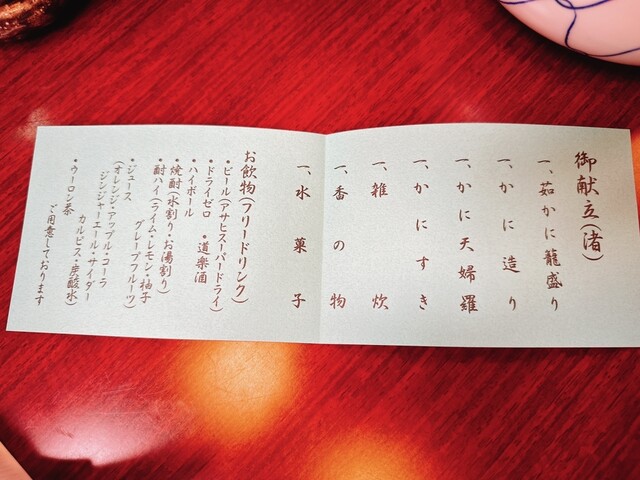 御献立(渚)
一、茹かに籠盛り
一、かに造り
一、かに天婦羅
一、かにすき
一、雑炊
一、香の物
一、水菓子
お飲物(フリードリンク)
・ビール(アサヒスーパードライ)
・ドライゼロ ・道楽酒
・ハイボール
・焼酎(水割り・お湯割り)
・酎ハイ(ライム・レモン・柚子
グレープフルーツ)
・ジュース
(オレンジ・アップル・コーラ
ジンジャーエール・サイダー
カルピス・炭酸水)
・ウーロン茶
ご用意しております